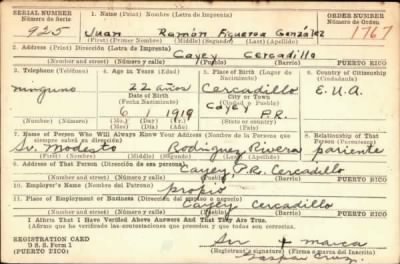 SERIAL NUMBER 1. Name (Print) Nombre (Letra de Imprenta) ORDER NUMBER
Número de Serie Número de Orden
925 Juan Ramón Figueroa González 1767
(First) (Primer Nombre) (Middle) (Segundo) (Last) (Apellido)
2. Address (Print) Dirección (Letra de Imprenta)
Cayey Cercadillo
(Number and street) (Número y calle) (Town) (Pueblo) (Barrio) PUERTO RICO
3. Telephone (Teléfono) 4. Age in Years (Edad) 5. Place of Birth (Lugar de Nacimiento) 6. Country of Citizenship (Ciudadanía)
ninguno 22 años Cercadillo E.U.A.
Date of Birth City or Town
(Fecha Nacimiento) (Ciudad o Pueblo)
6 / 1919 Cayey P.R.
(Mo.) (Day) (Yr.) (State or country)
7. Name of Person Who Will Always Know Your Address (Nombre de la Persona que siempre sabrá su dirección) 8. Relationship of That Person (Parentesco)
Sr. Modesto Rodríguez Rivera pariente
(First) (Primer Nombre) (Middle) (Segundo) (Last) (Apellido)
9. Address of That Person (Dirección de esa persona)
Cayey, P.R. Cercadillo
(Number and street) (Número y calle) (Town) (Pueblo) (Barrio) PUERTO RICO
10. Employer's Name (Nombre del Patrono)
propio
11. Place of Employment or Business (Dirección del empleo o negocio)
Cayey Cercadillo
(Number and street) (Número y calle) (Town) (Pueblo) (Barrio) PUERTO RICO
I Affirm That I Have Verified Above Answers And That They Are True.
(Afirmo que he verificado las contestaciones que preceden y que todas son correctas).
REGISTRATION CARD Su + marca
D S S. Form 1 (Registrant's signature) (Firma o Marca del Inscrito)
(PUERTO RICO) Cruz